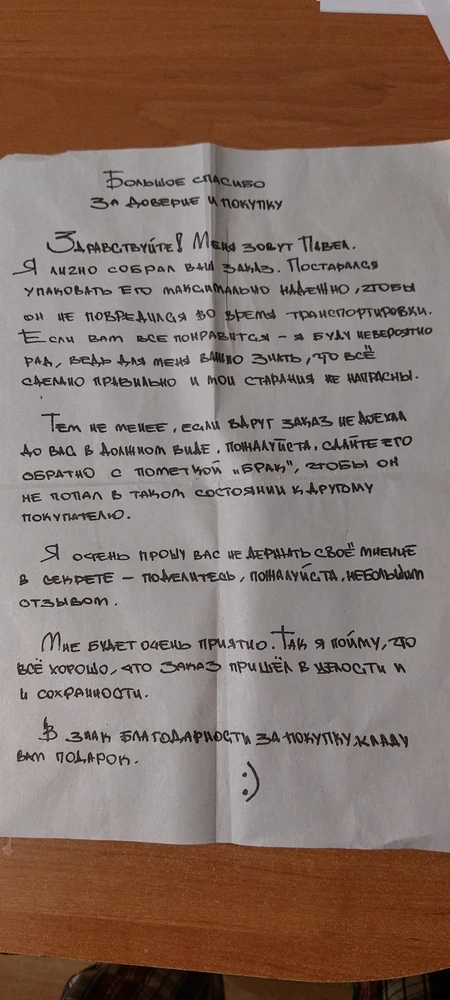 Большое спасибо
за доверие и покупку
Здравствуйте! Меня зовут Павел.
Я лично собрал ваш заказ. Постарался
упаковать его максимально надежно, чтобы
он не повредился во время транспортировки.
Если вам все понравится - я буду невероятно
рад, ведь для меня важно знать, что всё
сделано правильно и мои старания не напрасны.
Тем не менее, если вдруг заказ не доехал
до вас в должном виде, пожалуйста, сдайте его
обратно с пометкой „брак", чтобы он
не попал в таком состоянии к другому
покупателю.
Я очень прошу вас не держать своё мнение
в секрете - поделитесь, пожалуйста, небольшим
отзывом.
Мне будет очень приятно. Так я пойму, что
всё хорошо, что заказ пришёл в целости и
и сохранности.
В знак благодарности за покупку, кладу
вам подарок.
:)